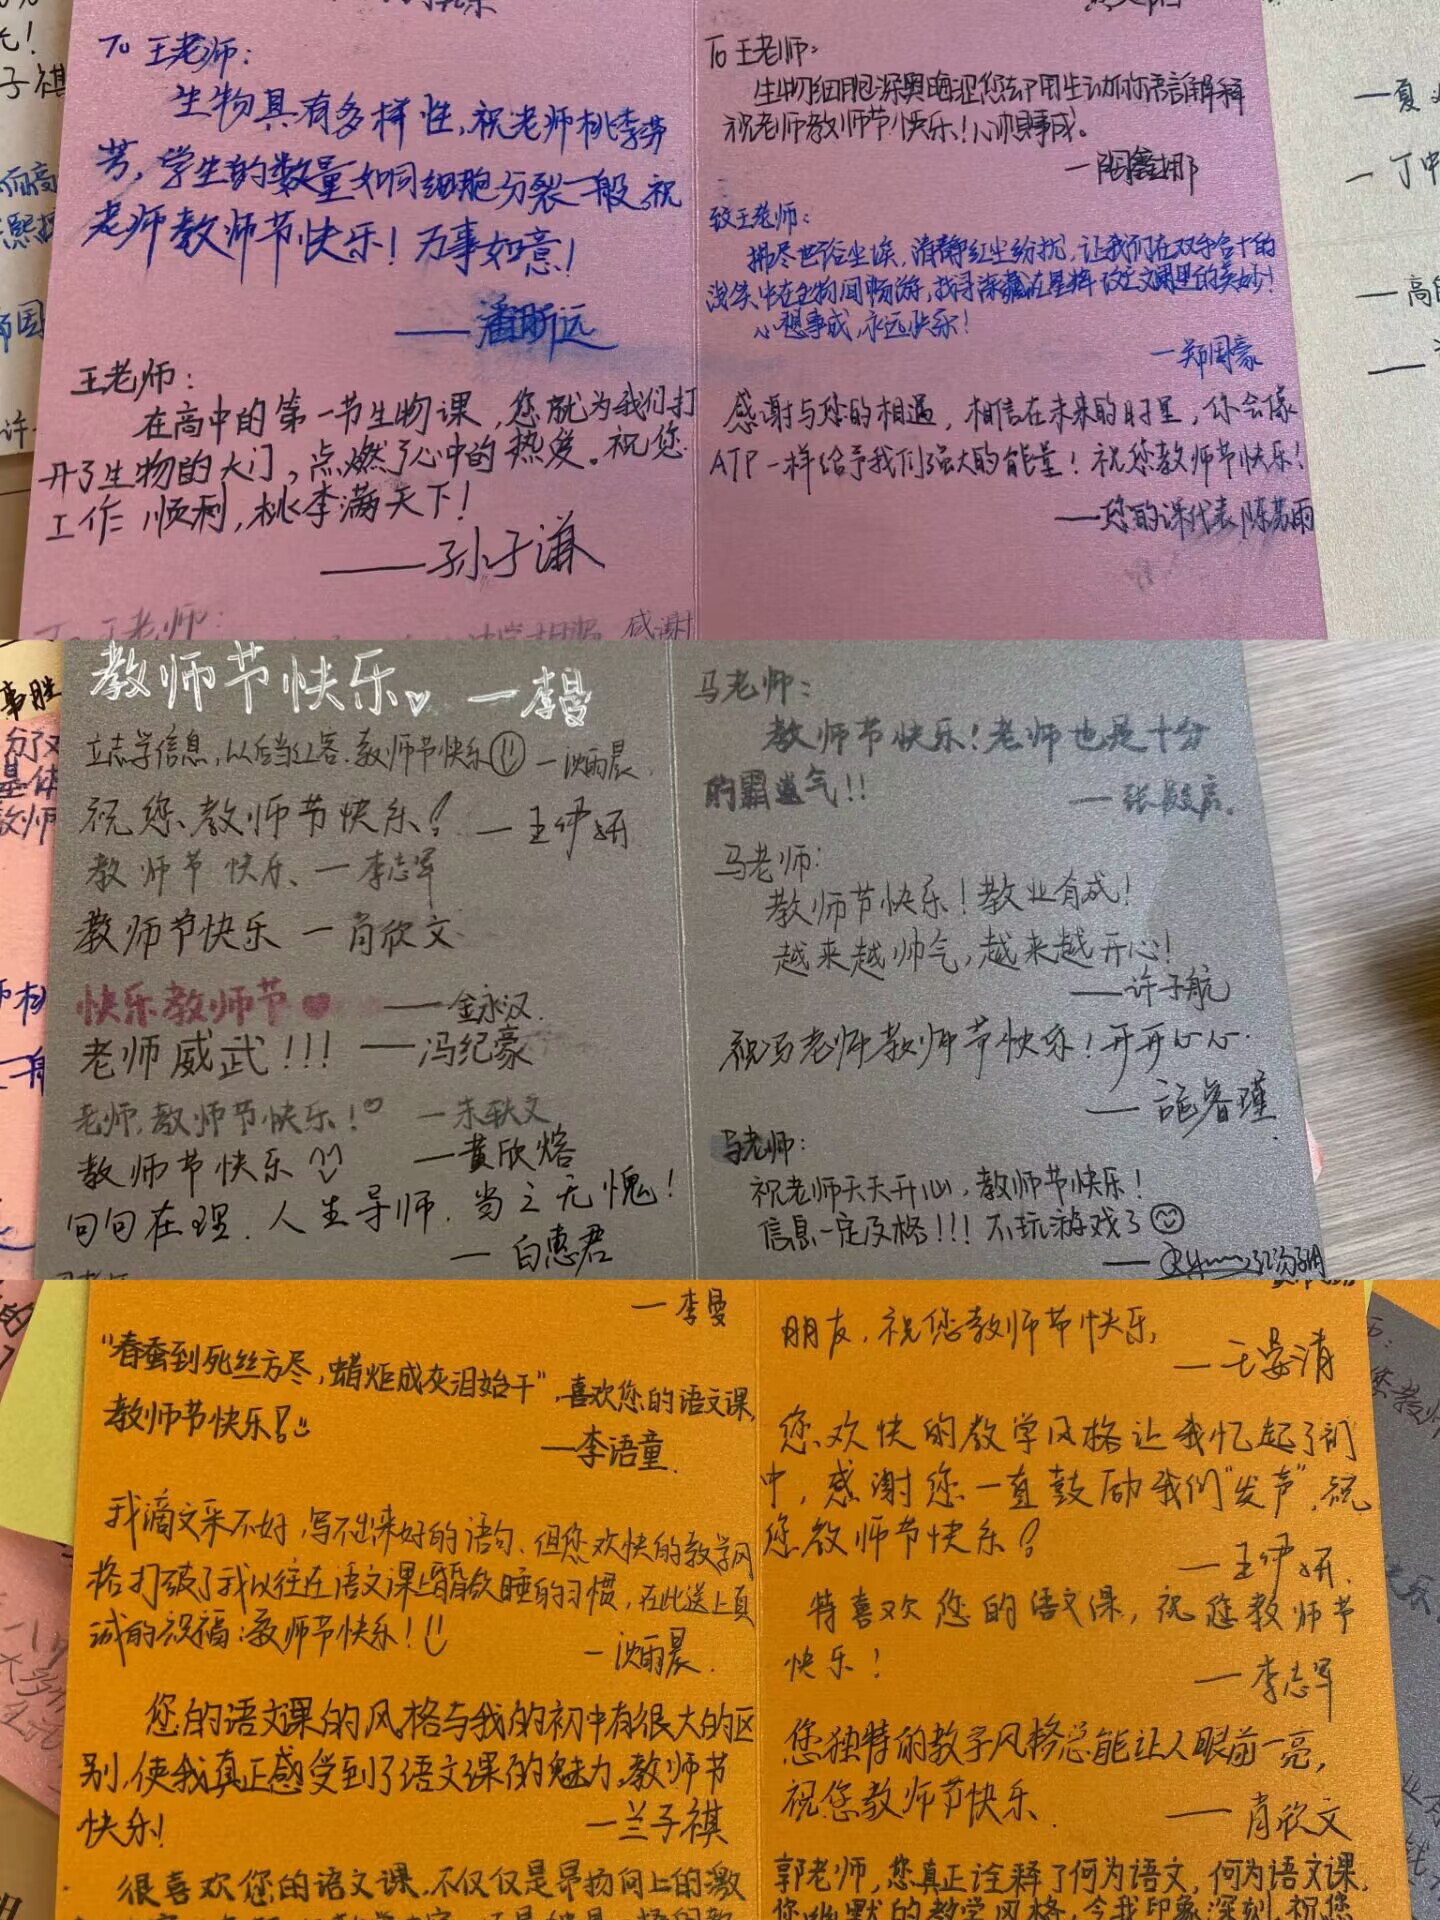 To 王老师：
生物具有多样性，祝老师桃李芬
芳，学生的数量如同细胞分裂一般，祝
老师教师节快乐！万事如意！
——潘昕远
王老师：
在高中的第一节生物课，您就为我们打
开了生物的大门，点燃了心中的热爱。祝您
工作顺利，桃李满天下！
——孙子谦
To 王老师：
感谢
To 王老师：
生物细胞深奥晦涩您却用生动的语言解释
祝老师教师节快乐！心想事成。
致王老师：
拂尽世俗尘埃，清静红尘纷扰，让我们在双手合十的
浅笑中在生物间畅游，找寻深藏在星辉
心想事成，永远快乐！
—郑周豪
感谢与您的相遇，相信在未来的时里，你会像
ATP一样给予我们强大的能量！祝您教师节快乐！
——您的课代表 陈苏雨
教师节快乐 —李曼
立志学信息，以后当红客，教师节快乐 —沈雨晨
祝您教师节快乐！ —王伊妍
教师节快乐、—李志军
教师节快乐 —肖欣文
快乐教师节 ——金永汉
老师威武！！！ ——冯纪豪
老师，教师节快乐！ —朱轶文
教师节快乐 —黄欣熔
句句在理，人生导师，当之无愧！
—白惠君
马老师：
教师节快乐！老师也是十分
的霸道气！！
马老师：
教师节快乐！教业有成！
越来越帅气，越来越开心！
——许子航
祝马老师教师节快乐！开开心心
—施睿瑾
马老师：
祝老师天天开心，教师节快乐！
信息一定及格！！！不玩游戏了
—李曼
“春蚕到死丝方尽，蜡炬成灰泪始干”，喜欢您的语文课，
教师节快乐！
—李语童
我滴文采不好，写不出来好的语句、但您欢快的教学风
格打破了我以往在语文课上昏昏欲睡的习惯，在此送上真
诚的祝福：教师节快乐！
—沈雨晨
您的语文课的风格与我的初中有很大的区
别，使我真正感受到了语文课的魅力。教师节
快乐！
—兰子祺
很喜欢您的语文课，不仅仅是昂扬向上的激
朋友，祝您教师节快乐，
—王晏清
您欢快的教学风格让我忆起了初
中，感谢您一直鼓励我们“发声”，祝
您教师节快乐！
—王伊妍
特喜欢您的语文课，祝您教师节
快乐！
—李志军
您独特的教学风格总能让人眼前一亮，
祝您教师节快乐
——肖欣文
郭老师，您真正诠释了何为语文，何为语文课，
您幽默的教学风格，令我印象深刻，祝您